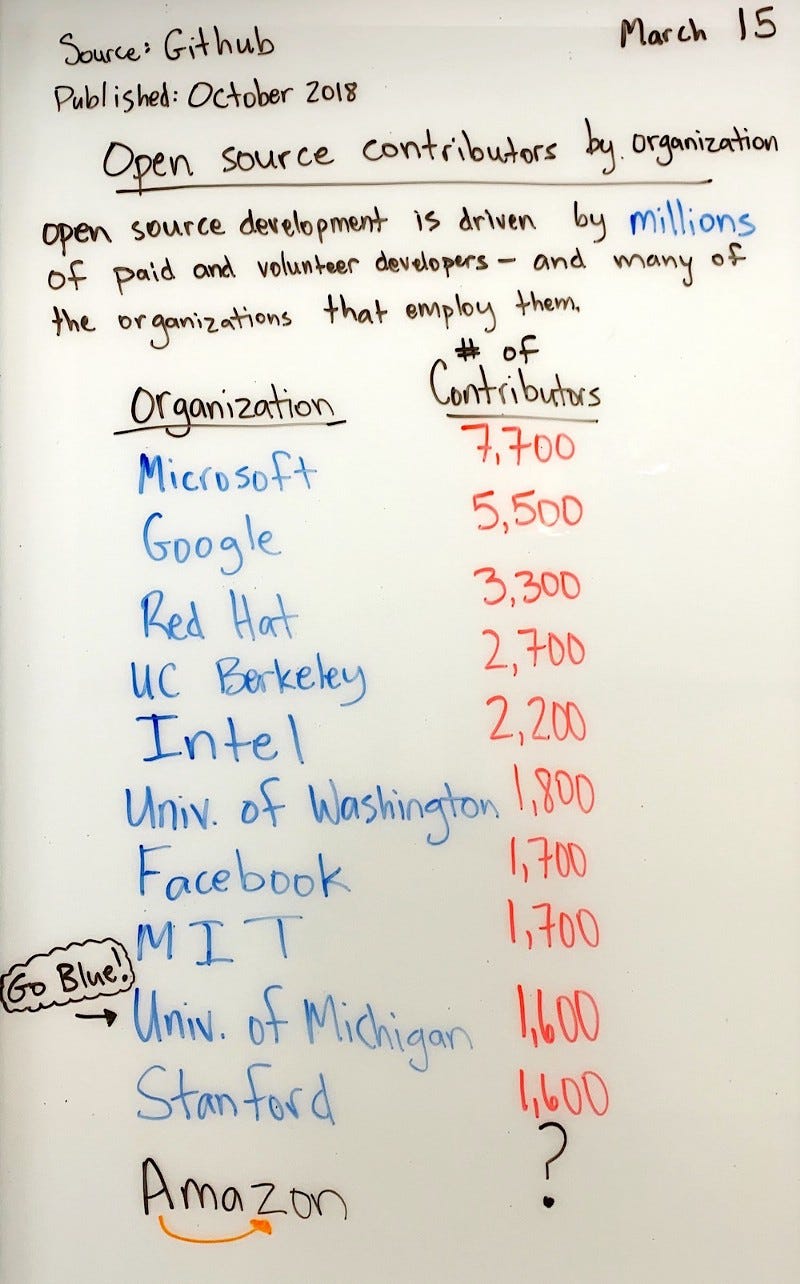 Source: Github March 15
Published: October 2018
Open source contributors by organization
open source development is driven by millions
of paid and volunteer developers — and many of
the organizations that employ them.
# of
Organization Contributors
Microsoft 7,700
Google 5,500
Red Hat 3,300
UC Berkeley 2,700
Intel 2,200
Univ. of Washington 1,800
Facebook 1,700
MIT 1,700
Go Blue!
→ Univ. of Michigan 1,600
Stanford 1,600
Amazon ?